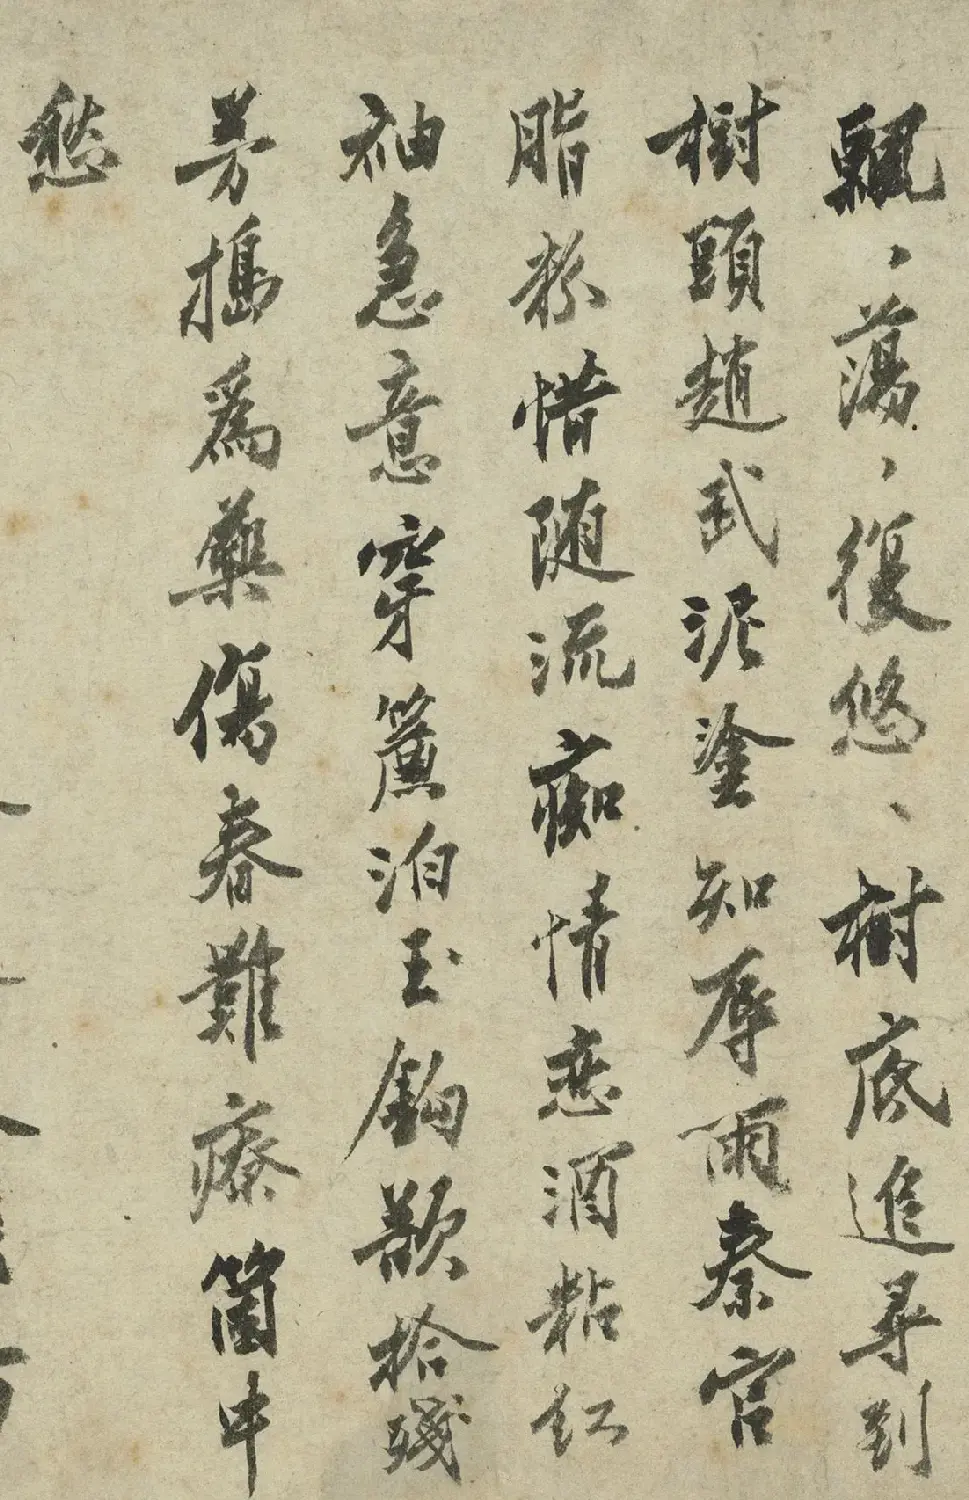 飄、蕩、復悠、樹底追尋到
樹頭趙武泥塗知辱雨秦宮
脂粉惜随流痴情恋酒粘紅
袖急意穿簾泊玉鈎欲拾殘
芳搗爲藥傷春難療箇中
愁